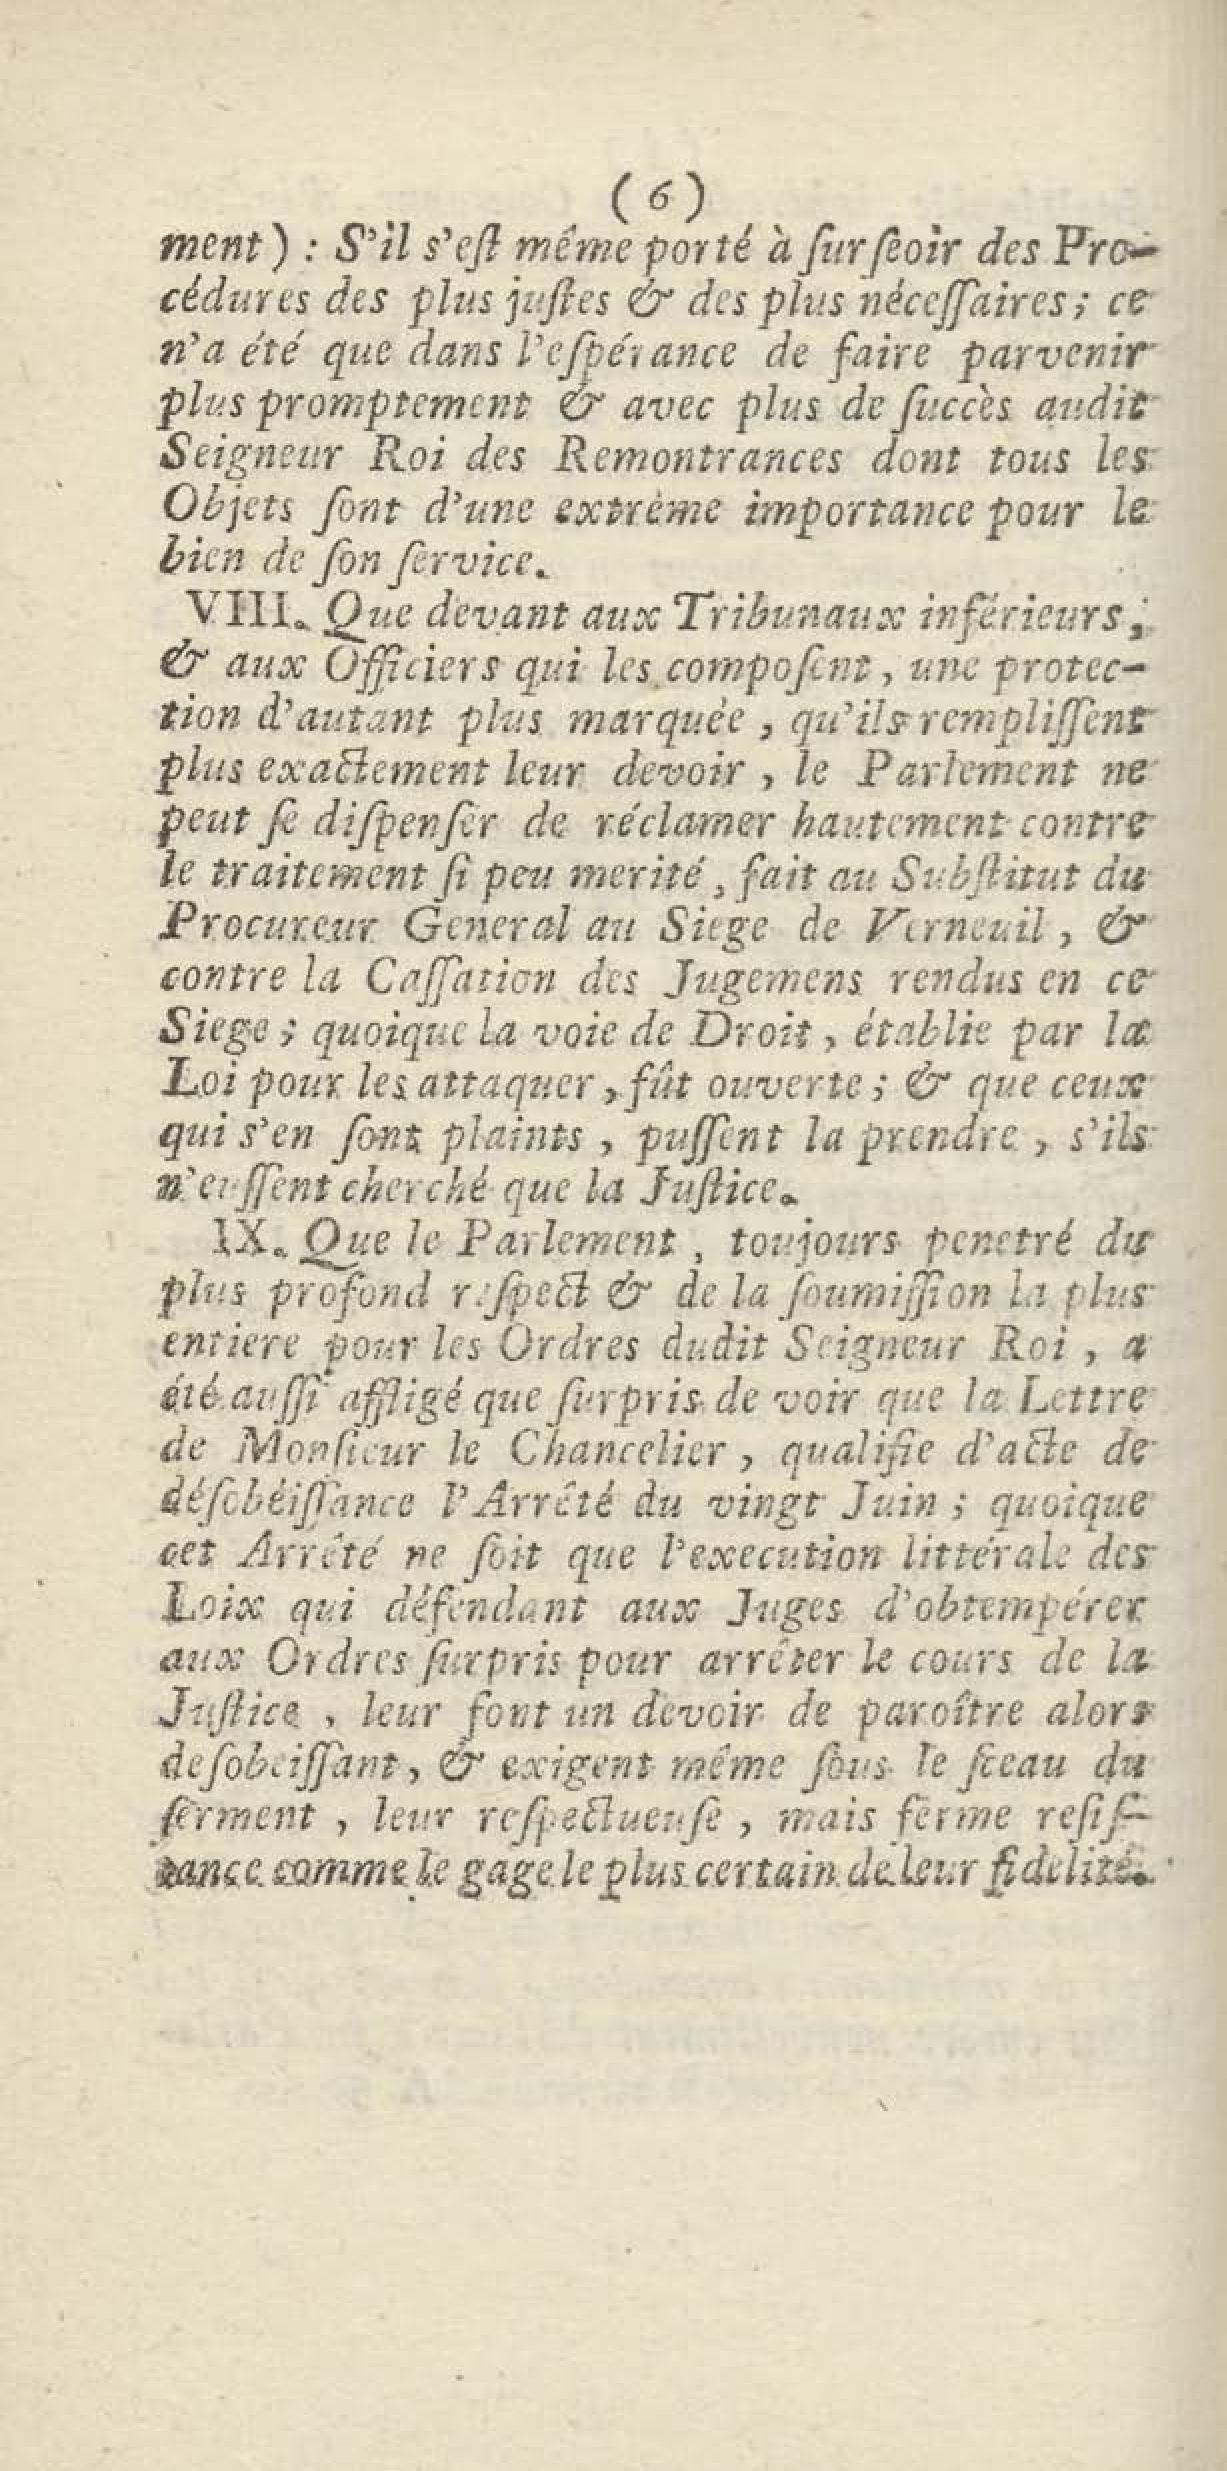 ( 6 )
ment ) : S'il s'eſt même porté à ſurſeoir des Pro-
cédures des plus juſtes & des plus néceſſaires ; ce
n'a été que dans l'eſpérance de faire parvenir
plus promptement & avec plus de ſuccès audit
Seigneur Roi des Remontrances dont tous les
Objets ſont d'une extrème importance pour le
bien de ſon ſervice.
VIII. Que devant aux Tribunaux inférieurs,
& aux Officiers qui les compoſent, une protec-
tion d'autant plus marquée, qu'ils rempliſſent
plus exactement leur devoir, le Parlement ne
peut ſe diſpenſer de réclamer hautement contre
le traitement ſi peu merité, fait au Subſtitut du
Procureur General au Siege de Verneuil, &
contre la Caſſation des Jugemens rendus en ce
Siege ; quoique la voie de Droit, établie par la
Loi pour les attaquer, fût ouverte ; & que ceux
qui s'en ſont plaints, puſſent la prendre, s'ils
n'euſſent cherché que la Juſtice.
IX. Que le Parlement, toujours penetré du
plus profond reſpect & de la ſoumiſſion la plus
entiere pour les Ordres dudit Seigneur Roi, a
été auſſi affligé que ſurpris de voir que la Lettre
de Monſieur le Chancelier, qualifie d'acte de
déſobéiſſance l'Arrêté du vingt Juin ; quoique
cet Arrêté ne ſoit que l'execution littérale des
Loix qui défendant aux Juges d'obtempérer
aux Ordres ſurpris pour arrêter le cours de la
Juſtice, leur font un devoir de paroître alors
deſobeiſſant, & exigent même ſous le ſceau du
ſerment, leur reſpectueuſe, mais ferme reſiſ-
tance comme le gage le plus certain de leur fidelité.